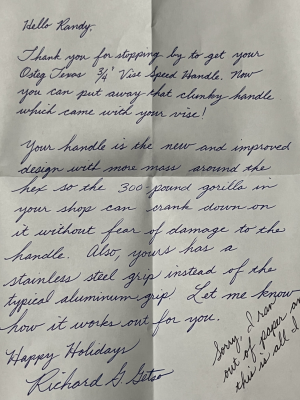 Hello Randy.
Thank you for stopping by to get your
Texas 3/4" Vise Speed Handle. Now
you can put away that clunky handle
which came with your vise!
Your handle is the new and improved
design with more mass around the
hex so the 300-pound gorilla in
your shop can crank down on
it without fear of damage to the
handle. Also, yours has a
stainless steel grip instead of the
typical aluminum grip. Let me know
how it works out for you.
Happy Holidays
Richard G.
Sorry, I ran
out of paper and
this is all I